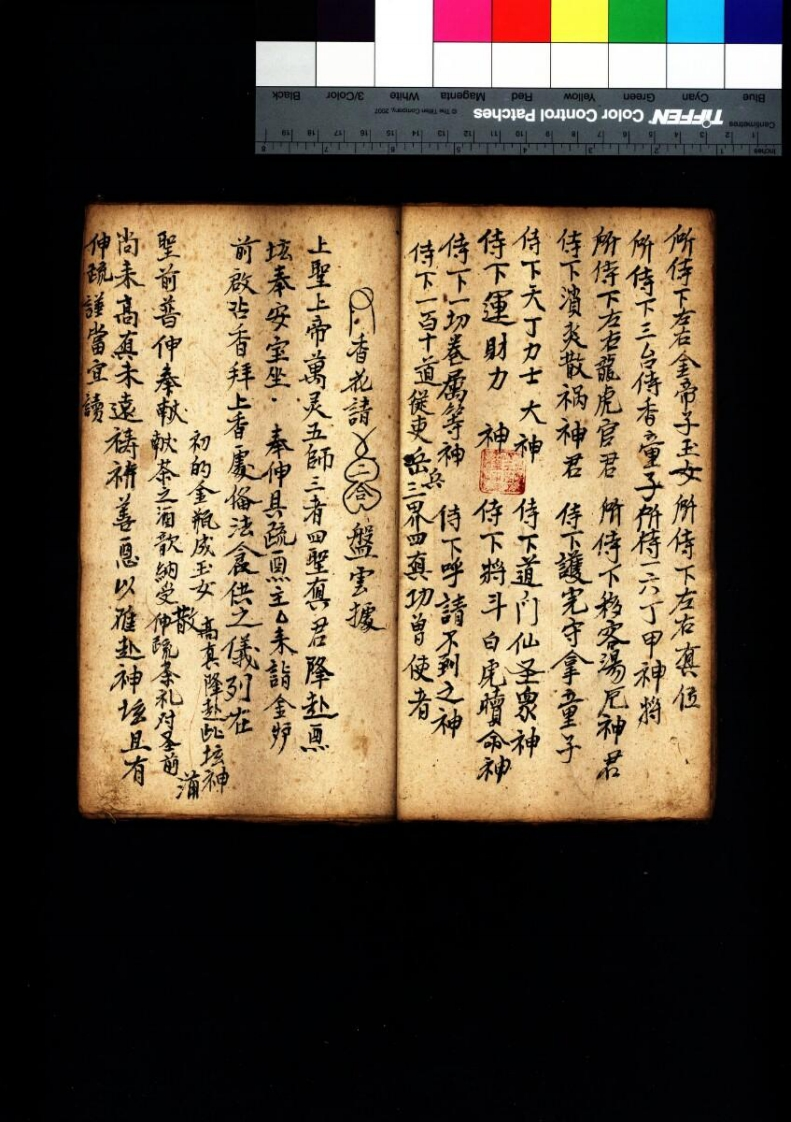 所侍下左右金帝子玉女 所侍下左右真位
所侍下三台侍香童子所侍一六丁甲神將
所侍下左右龍虎官君 所侍下移容湯厄神君
侍下消災散禍神君 侍下護宅守拿童子
侍下天丁力士大神 侍下道门仙圣衆神
侍下運財力神 侍下將斗白虎瞔命神
侍下一切眷属等神 侍下呼請不到之神
侍下一百十道從吏岳兵三界四真功曾使者
香花請 二合 盤雲據
上聖上帝萬灵五師三者四聖真君降赴
坛奉安宝坐 奉伸具疏 主厶来詣金炉
前啟 香拜上香處俻法食供之儀列在
初的金瓶成玉女 散 高真降赴此坛神
聖前普伸奉献 献茶之酒歆納受伸疏 礼对圣前
尚来高真未遠禱祚善 以雅赴神坛且有
伸疏謹當宣讀
Blue Cyan Green Yellow Red Magenta White 3/Color Black
TIFFEN Color Control Patches © The Tiffen Company, 2007
Centimetres
1 2 3 4 5 6 7 8 9 10 11 12 13 14 15 16 17 18 19
Inches
1 2 3 4 5 6 7 8